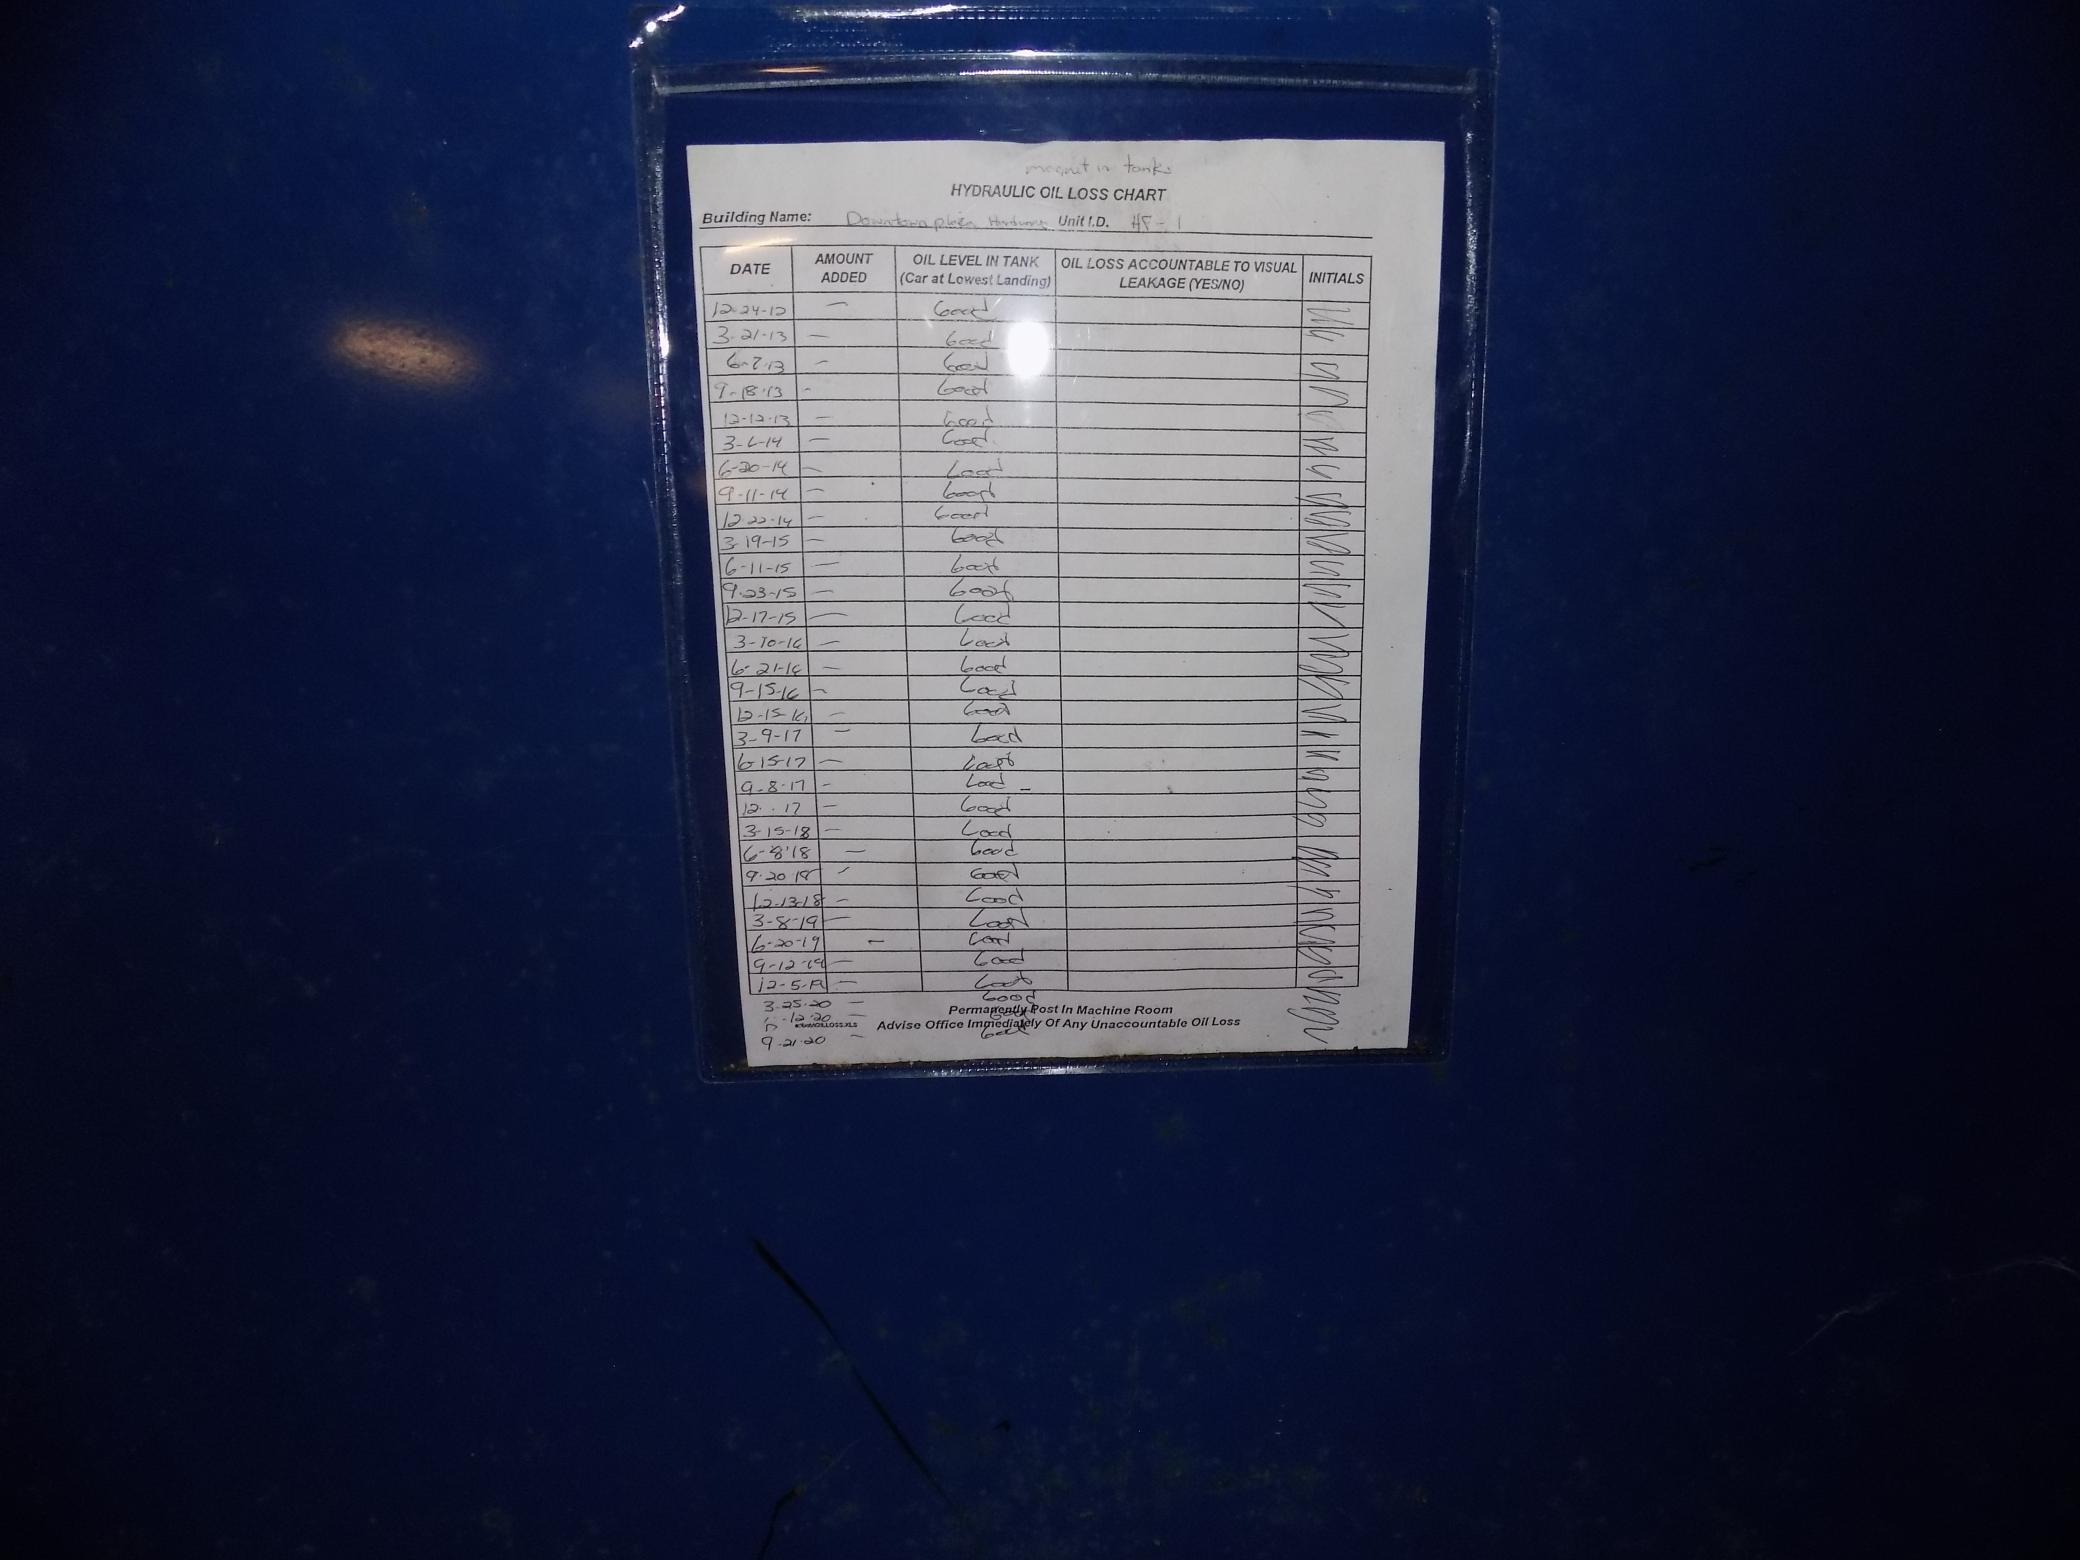 magnet in tank
HYDRAULIC OIL LOSS CHART
Building Name: Downtown Unit I.D.
DATE AMOUNT ADDED OIL LEVEL IN TANK (Car at Lowest Landing) OIL LOSS ACCOUNTABLE TO VISUAL LEAKAGE (YES/NO) INITIALS
12-24-12 — Good
3-21-13 — Good
6-7-13 — Good
9-18-13 - Good
12-12-13 — Good
3-6-14 — Good
6-20-14 — Good
9-11-14 — Good
12-22-14 — Good
3-19-15 — Good
6-11-15 — Good
9-23-15 — Good
12-17-15 — Good
3-10-16 — Good
6-21-16 — Good
9-15-16 — Good
12-15-16 — Good
3-9-17 — Good
6-15-17 — Good
9-8-17 - Good
12- -17 — Good
3-15-18 — Good
6-8-18 — Good
9-20-18 - Good
12-13-18 — Good
3-8-19 — Good
6-20-19 — Good
9-12-19 — Good
12-5-19 — Good
3-25-20 — Good
Permanently Post In Machine Room
-12-20 — Good
Advise Office Immediately Of Any Unaccountable Oil Loss
9-21-20 — Good